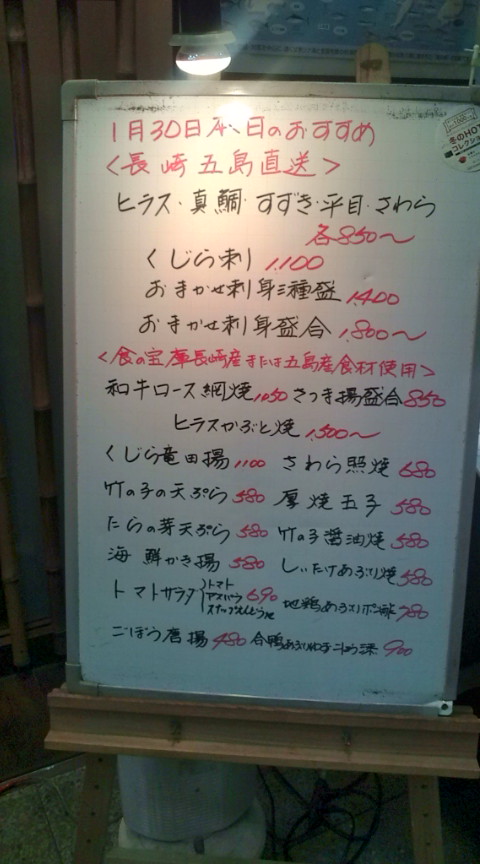 1月30日本日のおすすめ
<長崎五島直送>
ヒラス・真鯛・すずき・平目・さわら
各850〜
くじら刺 1,100
おまかせ刺身三種盛 1,400
おまかせ刺身盛合 1,800〜
<食の宝庫長崎産または五島産食材使用>
和牛ロース網焼 1,050 さつま揚盛合 850
ヒラスかぶと焼 1,500〜
くじら竜田揚 1100 さわら照焼 680
竹の子の天ぷら 580 厚焼玉子 580
たらの芽天ぷら 580 竹の子醤油焼 580
海鮮かき揚 580 しいたけあぶり焼 580
トマトサラダ トマト アスパラ スナップえんどう 690 地鶏あぶりポン酢 780
ごぼう唐揚 480 合鴨あぶり 900
冬のHO
コレクショ